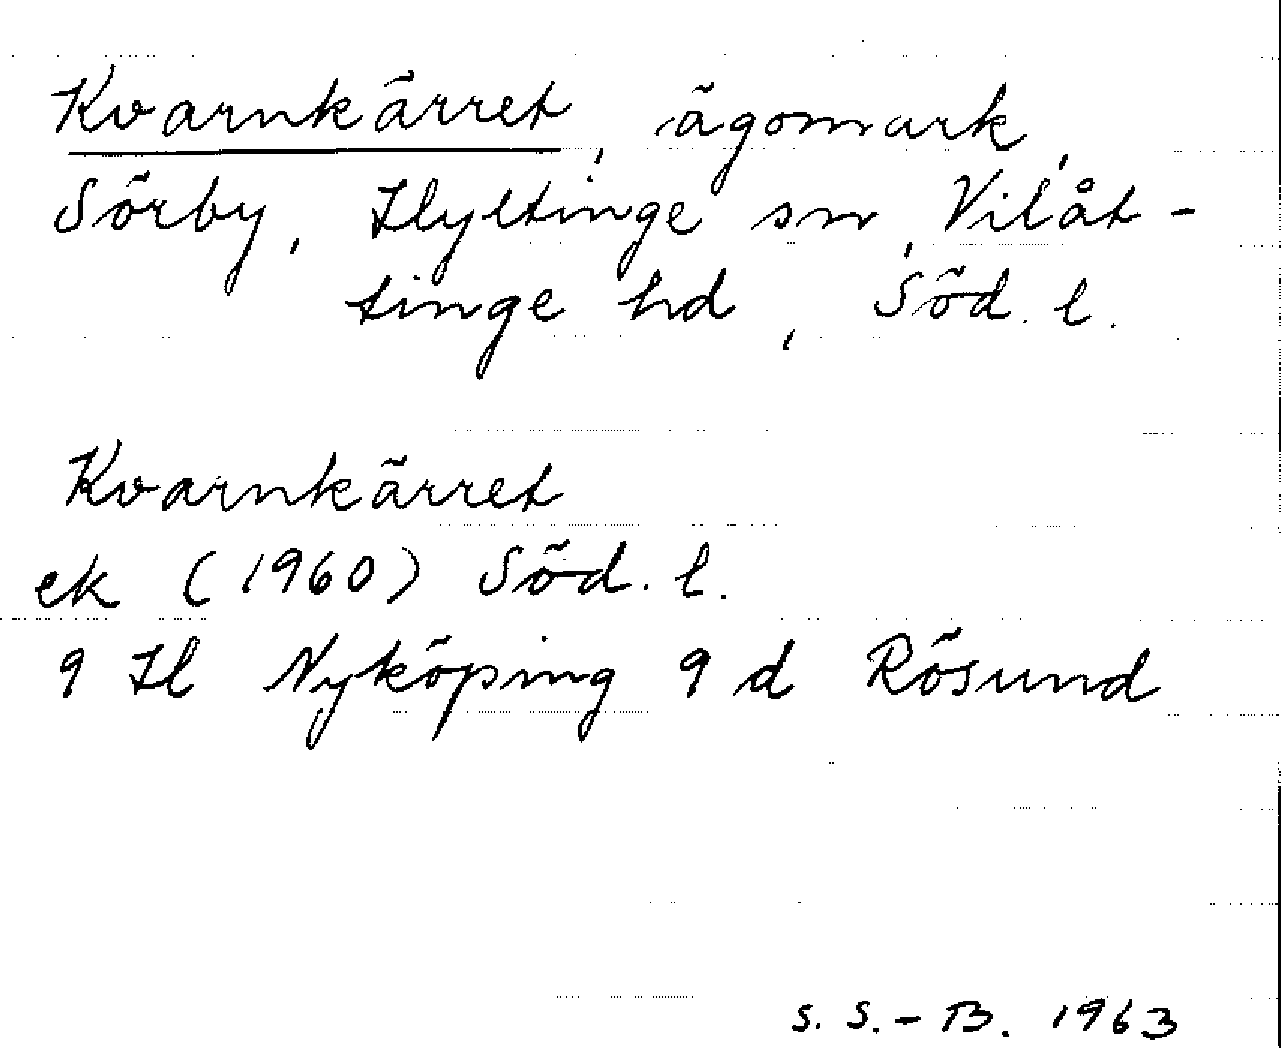 Kvarnkärret, ägomark,
Sörby, Hyltinge sn, Vilåt-
tinge hd, Söd. l.
Kvarnkärret
ek (1960) Söd. l.
9 H Nyköping 9 d Rösund
S. S.-B. 1963